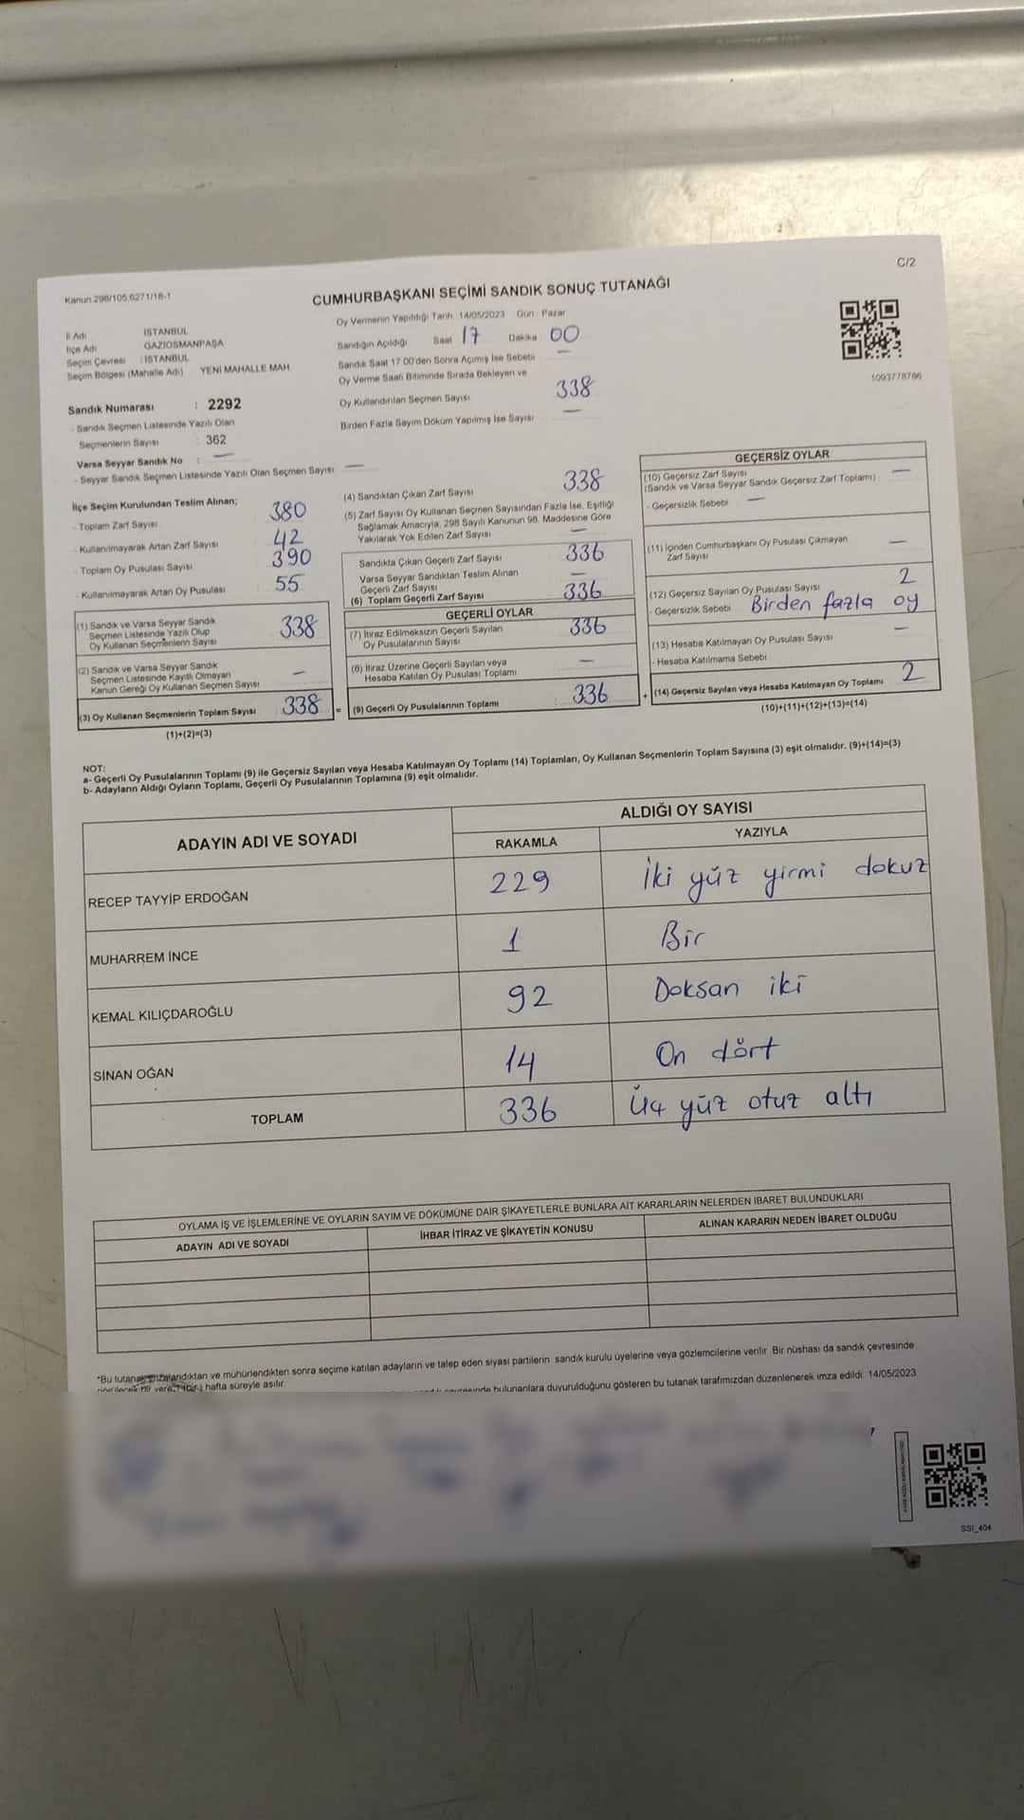 C/2
Kanun 298/105,6271/18-1
CUMHURBAŞKANI SEÇİMİ SANDIK SONUÇ TUTANAĞI
İl Adı : İSTANBUL
İlçe Adı : GAZİOSMANPAŞA
Seçim Çevresi : İSTANBUL
Seçim Bölgesi (Mahalle Adı) YENİ MAHALLE MAH.
Sandık Numarası : 2292
- Sandık Seçmen Listesinde Yazılı Olan
Seçmenlerin Sayısı : 362
Varsa Seyyar Sandık No : —
- Seyyar Sandık Seçmen Listesinde Yazılı Olan Seçmen Sayısı —
Oy Vermenin Yapıldığı Tarih: 14/05/2023 Gün: Pazar
Sandığın Açıldığı Saat 17 Dakika 00
Sandık Saat 17:00'den Sonra Açılmış İse Sebebi —
Oy Verme Saati Bitiminde Sırada Bekleyen ve
Oy Kullandırılan Seçmen Sayısı 338
Birden Fazla Sayım Döküm Yapılmış İse Sayısı —
1093778786
İlçe Seçim Kurulundan Teslim Alınan;
- Toplam Zarf Sayısı 380
- Kullanılmayarak Artan Zarf Sayısı 42
- Toplam Oy Pusulası Sayısı 390
- Kullanılmayarak Artan Oy Pusulası 55
(1) Sandık ve Varsa Seyyar Sandık
Seçmen Listesinde Yazılı Olup
Oy Kullanan Seçmenlerin Sayısı 338
(2) Sandık ve Varsa Seyyar Sandık
Seçmen Listesinde Kayıtlı Olmayan
Kanun Gereği Oy Kullanan Seçmen Sayısı —
(3) Oy Kullanan Seçmenlerin Toplam Sayısı 338 =
(1)+(2)=(3)
(4) Sandıktan Çıkan Zarf Sayısı 338
(5) Zarf Sayısı Oy Kullanan Seçmen Sayısından Fazla İse, Eşitliği
Sağlamak Amacıyla, 298 Sayılı Kanunun 98. Maddesine Göre
Yakılarak Yok Edilen Zarf Sayısı —
Sandıkta Çıkan Geçerli Zarf Sayısı 336
Varsa Seyyar Sandıktan Teslim Alınan
Geçerli Zarf Sayısı —
(6) Toplam Geçerli Zarf Sayısı 336
GEÇERLİ OYLAR
(7) İtiraz Edilmeksizin Geçerli Sayılan
Oy Pusulalarının Sayısı 336
(8) İtiraz Üzerine Geçerli Sayılan veya
Hesaba Katılan Oy Pusulası Toplamı —
(9) Geçerli Oy Pusulalarının Toplamı 336 +
GEÇERSİZ OYLAR
(10) Geçersiz Zarf Sayısı
(Sandık ve Varsa Seyyar Sandık Geçersiz Zarf Toplamı) : —
- Geçersizlik Sebebi —
(11) İçinden Cumhurbaşkanı Oy Pusulası Çıkmayan
Zarf Sayısı —
(12) Geçersiz Sayılan Oy Pusulası Sayısı 2
- Geçersizlik Sebebi Birden fazla oy
(13) Hesaba Katılmayan Oy Pusulası Sayısı —
- Hesaba Katılmama Sebebi
(14) Geçersiz Sayılan veya Hesaba Katılmayan Oy Toplamı 2
(10)+(11)+(12)+(13)=(14)
NOT:
a- Geçerli Oy Pusulalarının Toplamı (9) ile Geçersiz Sayılan veya Hesaba Katılmayan Oy Toplamı (14) Toplamları, Oy Kullanan Seçmenlerin Toplam Sayısına (3) eşit olmalıdır. (9)+(14)=(3)
b- Adayların Aldığı Oyların Toplamı, Geçerli Oy Pusulalarının Toplamına (9) eşit olmalıdır.
ADAYIN ADI VE SOYADI
ALDIĞI OY SAYISI
RAKAMLA YAZIYLA
RECEP TAYYİP ERDOĞAN 229 İki yüz yirmi dokuz
MUHARREM İNCE 1 Bir
KEMAL KILIÇDAROĞLU 92 Doksan iki
SİNAN OĞAN 14 On dört
TOPLAM 336 Üç yüz otuz altı
OYLAMA İŞ VE İŞLEMLERİNE VE OYLARIN SAYIM VE DÖKÜMÜNE DAİR ŞİKAYETLERLE BUNLARA AİT KARARLARIN NELERDEN İBARET BULUNDUKLARI
ADAYIN ADI VE SOYADI İHBAR İTİRAZ VE ŞİKAYETİN KONUSU ALINAN KARARIN NEDEN İBARET OLDUĞU
*Bu tutanak imzalandıktan ve mühürlendikten sonra seçime katılan adayların ve talep eden siyasi partilerin sandık kurulu üyelerine veya gözlemcilerine verilir. Bir nüshası da sandık çevresinde
hafta süreyle asılır.
bulunanlara duyurulduğunu gösteren bu tutanak tarafımızdan düzenlenerek imza edildi. 14/05/2023
SSI_404